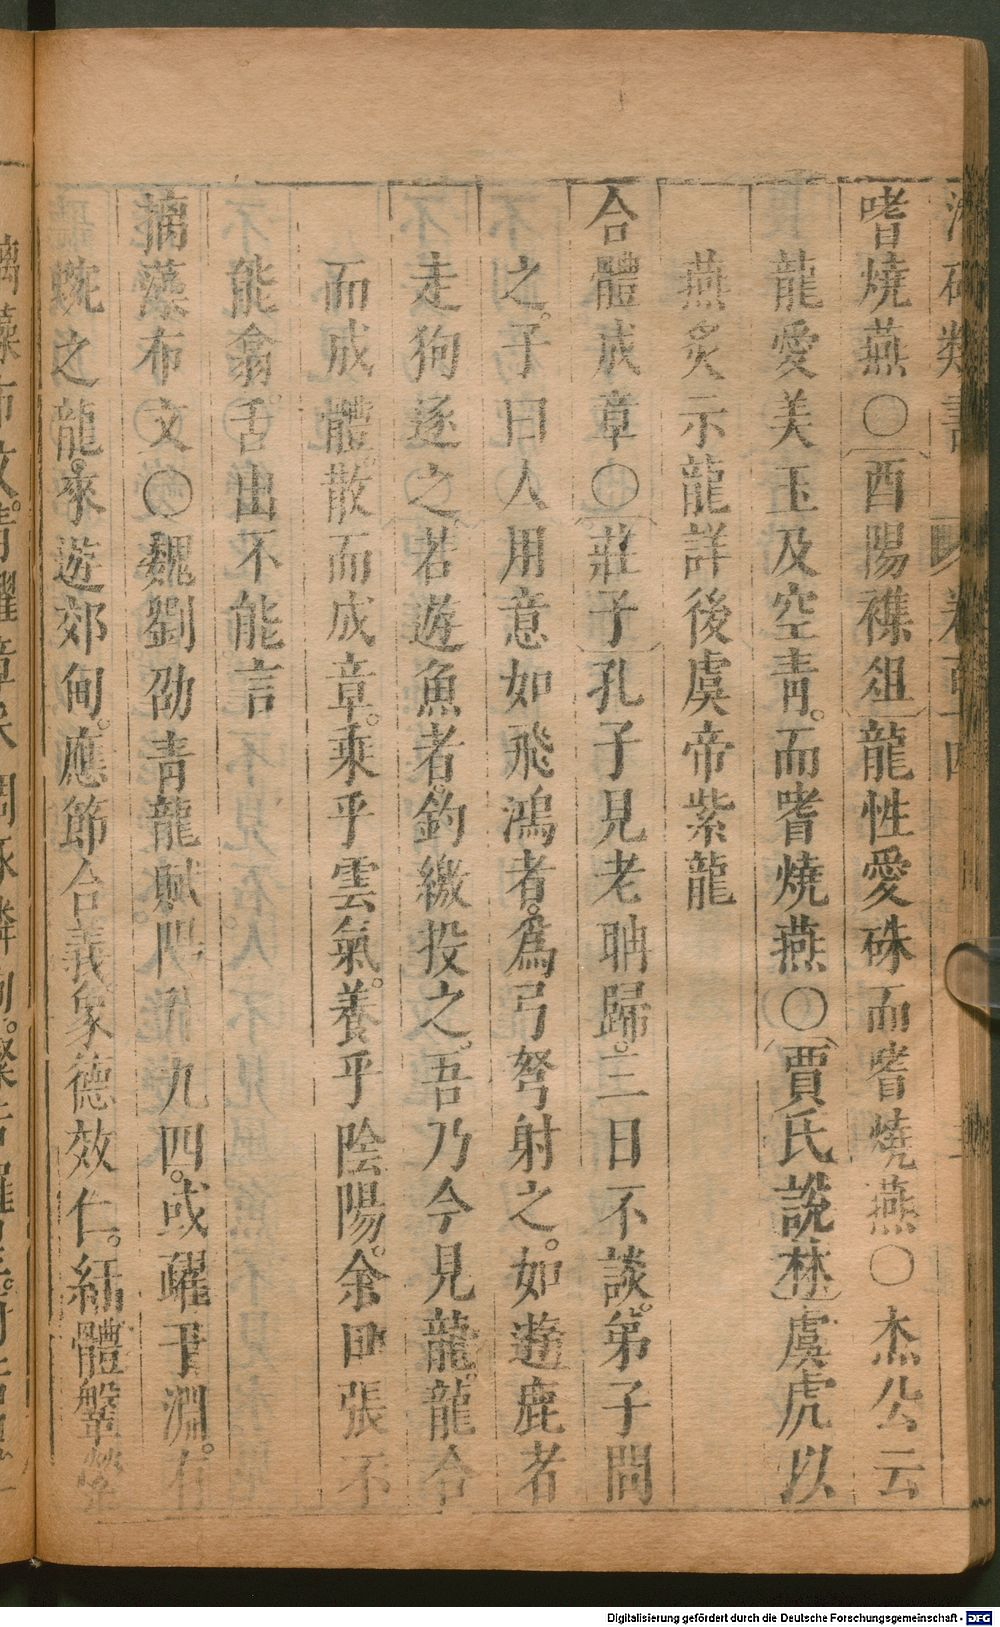 嗜燒燕〇酉陽襍俎龍性愛硃而嗜燒燕〇杰公云
龍愛美玉及空青。而嗜燒燕〇賈氏說林虞虎以
燕炙示龍詳後虞帝紫龍
合體成章〇莊子孔子見老聃歸。三日不談。弟子問
之。子曰人用意如飛鴻者。爲弓弩射之。如遊鹿者
走狗逐之。若遊魚者。釣繳投之。吾乃今見龍。龍合
而成體。散而成章。乘乎雲氣。養乎陰陽。余口張不
能翕。舌出不能言
摛藻布文〇魏劉劭青龍賦 九四。或躍于淵。有
蜿之龍。來遊郊甸。應節合義。象德效仁。紆體鞶縈
Digitalisierung gefördert durch die Deutsche Forschungsgemeinschaft - DFG